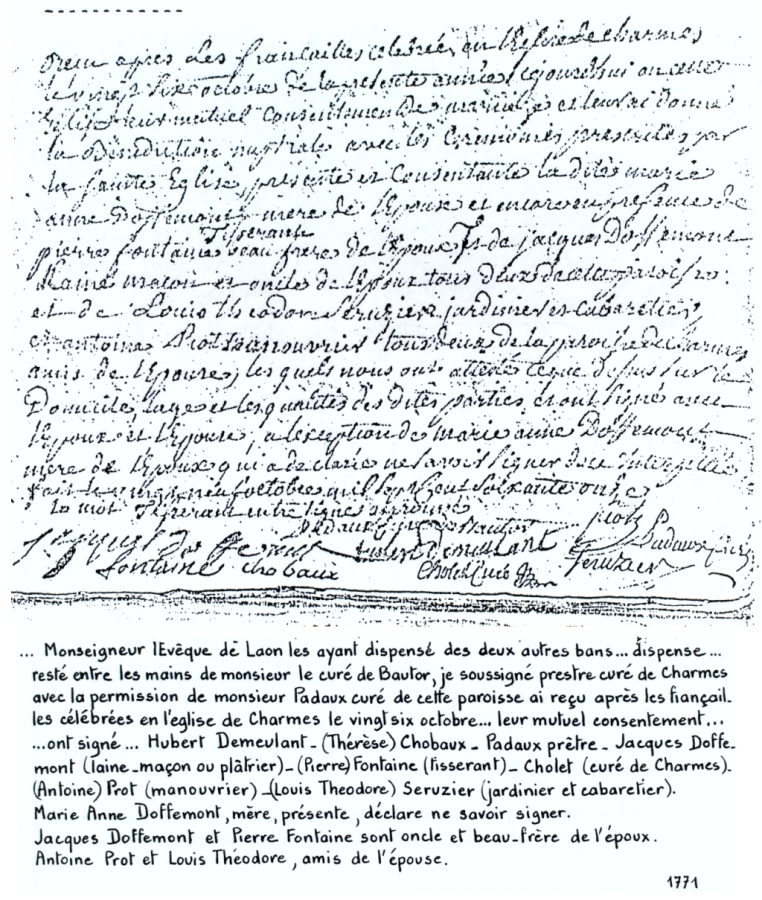 reçu après les fiançailles célébrée en l'Eglise de charmes
le vingt six octobre de la présente année cejourdhui
leur mutuel consentement de mariage et leur ai donné
la Bénédiction nuptiale avec les Cérémonies prescrites par
la sainte Eglise, présente et Consentante la dite marie
anne Doffemont mere de l'Epoux et encore en présence de
Tisserant
pierre fontaine beau frere de l'Epoux & de jacques Doffemont
maçon et oncle de l'Epoux tous deux de cette paroisse
et de Louis theodore Seruzier jardinier et cabaretier,
et antoine Prot manouvrier tous deux de la paroisse de charmes
amis de l'Epouse, les quels nous ont attesté ce que dessus sur le
Domicile, l'age et les qualités des dites parties et ont signé avec
l'Epoux et l'Epouse, a l'exception de marie anne Doffemont
mere de l'Epoux qui a declaré ne savoir signer de ce interpellée
fait le vingt neuf octobre mil sept Cent Soixante onze
le mot Tisserant entre lignes approuvé
jacques Doffemont hubert Demeulant prot Padaux
fontaine chobaux Cholet Curé de Seruzier
... Monseigneur l'Evêque de Laon les ayant dispensé des deux autres bans... dispense...
resté entre les mains de monsieur le curé de Bautor, je soussigné prestre curé de Charmes
avec la permission de monsieur Padaux curé de cette paroisse ai reçu après les fiançail-
les célébrées en l'église de Charmes le vingt six octobre... leur mutuel consentement...
...ont signé... Hubert Demeulant - (Thérèse) Chobaux - Padaux prêtre - Jacques Doffe-
mont (laine - maçon ou plâtrier) - (Pierre) Fontaine (tisserant) - Cholet (curé de Charmes) -
(Antoine) Prot (manouvrier) - (Louis Theodore) Seruzier (jardinier et cabaretier).
Marie Anne Doffemont, mère, présente, déclare ne savoir signer.
Jacques Doffemont et Pierre Fontaine sont oncle et beau-frère de l'époux.
Antoine Prot et Louis Théodore, amis de l'épouse.
1771